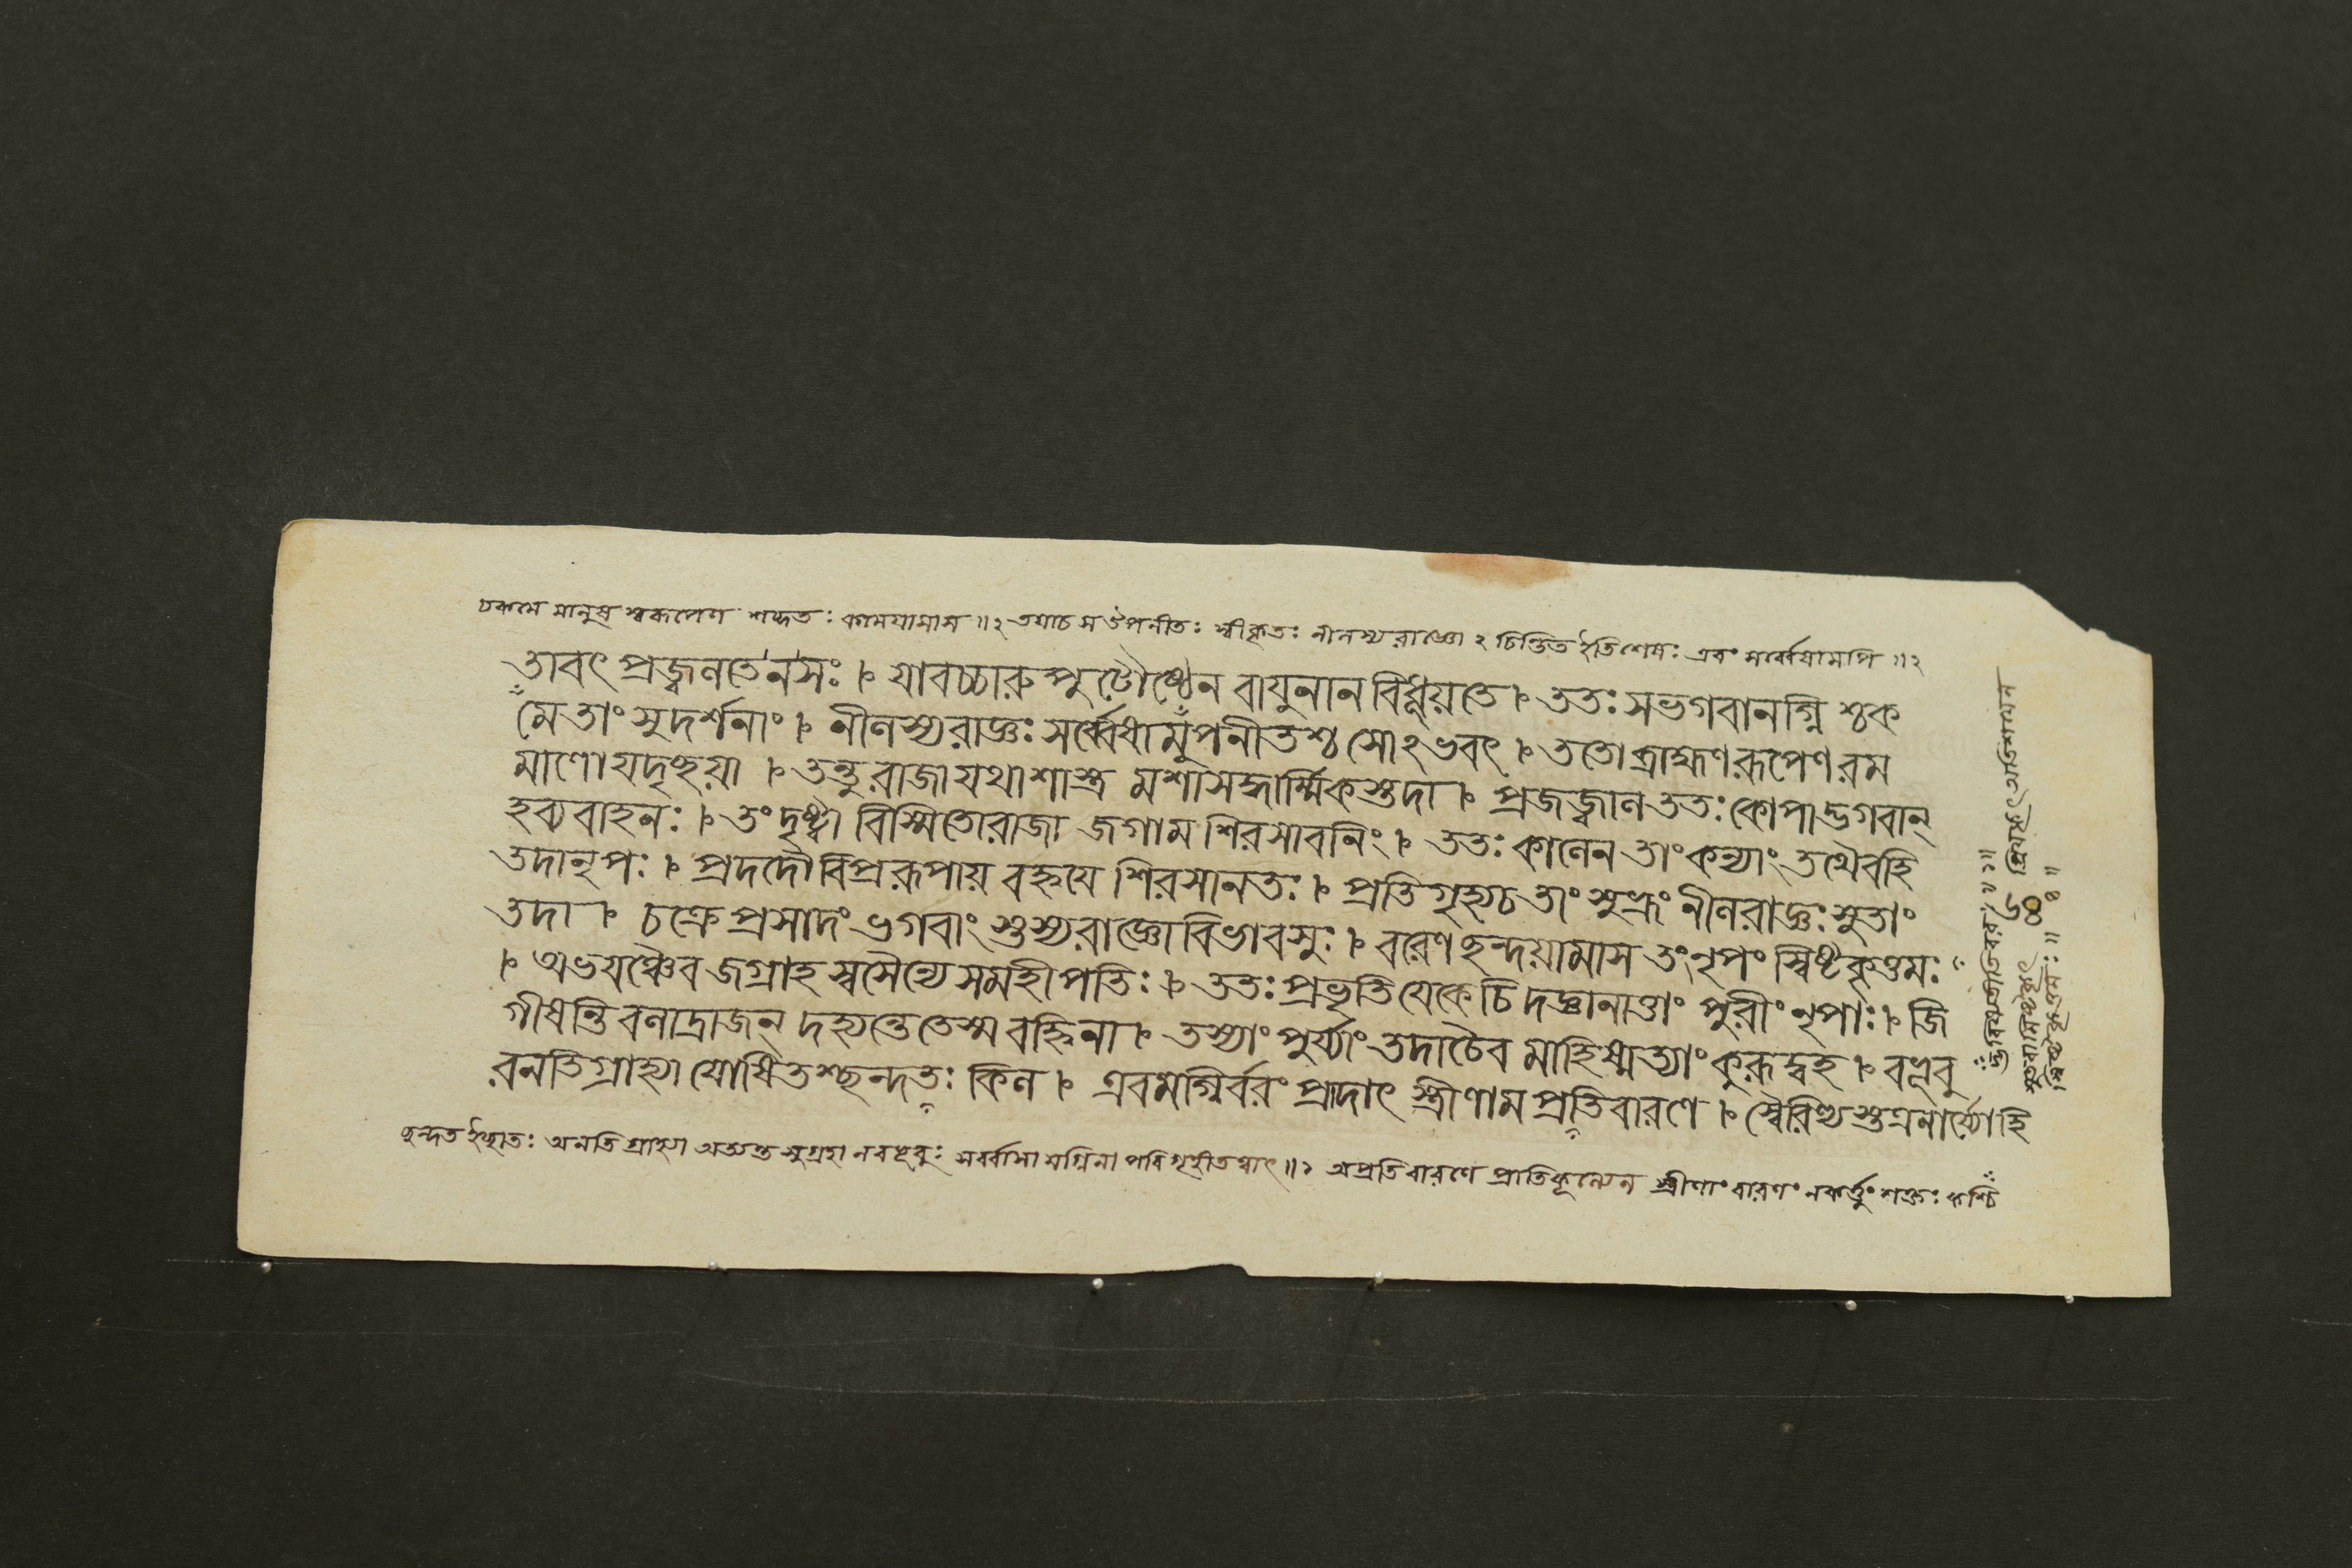 চকমে মানুষ স্বরূপেণ শব্দতঃ কাময়ামাস ॥২ তয়াচ স উপনীতঃ স্বীকৃতঃ নীলস্য রাজ্ঞো২ চিন্তিত ইতিশেষঃ এবং সর্ব্বেষামপি ॥২
তাবৎ প্রজ্বলতে ন সঃ । যাবচ্চারু পুটৌষ্ঠেন বায়ুনা ন বিধূয়তে । ততঃ স ভগবানগ্নি শ্চক
মে তাং সুদর্শনাং । নীলস্য রাজ্ঞঃ সর্ব্বেষামুপনীতশ্চ সোঽভবৎ । ততো ব্রাহ্মণ রূপেণ রম
মাণো যদৃচ্ছয়া । তন্তু রাজা যথাশাস্ত্র মশাসদ্ধার্ম্মিকস্তদা । প্রজজ্বাল ততঃ কোপাদ্ভগবান্
হব্যবাহনঃ । তং দৃষ্ট্বা বিস্মিতো রাজা জগাম শিরসাবনিং । ততঃ কালেন তাং কন্যাং তথৈবহি
তদা নৃপঃ । প্রদদৌ বিপ্ররূপায় বহ্নয়ে শিরসা নতঃ । প্রতিগৃহ্য চ তাং সুভ্রূং নীলরাজ্ঞঃ সুতাং
তদা । চক্রে প্রসাদং ভগবাং স্তস্য রাজ্ঞো বিভাবসুঃ । বরেণ ছন্দয়ামাস তং নৃপং স্বিষ্টকৃত্তমঃ
। অভয়ঞ্চৈব জগ্রাহ স্বসৈন্যে স মহীপতিঃ । ততঃ প্রভৃতি যে কেচি দজ্ঞানাত্তাং পুরীং নৃপাঃ । জি
গীষন্তি বলাদ্রাজন্ দহ্যন্তে তেস্ম বহ্নিনা । তস্যাং পুর্য্যাং তদাচৈব মাহিষ্মত্যাং কুরূদ্বহ । বভূবু
রনতিগ্রাহ্যা যোষিতশ্ছন্দতঃ কিল । এবমগ্নির্বরং প্রাদাৎ স্ত্রীণাম প্রতিবারণে । স্বৈরিণ্যস্তত্রনার্য্যোহি
ছন্দত ইচ্ছাতঃ অনতি গ্রাহ্যা অত্যন্ত সুগ্রহা ন বভূবুঃ সর্ব্বাসা মগ্নিনা পরিগৃহীতত্বাৎ ॥২ অপ্রতিবারণে প্রাতিকূল্যেন স্ত্রীণাং বারণং ন কর্ত্তুং শক্তঃ কশ্চি
৬৪